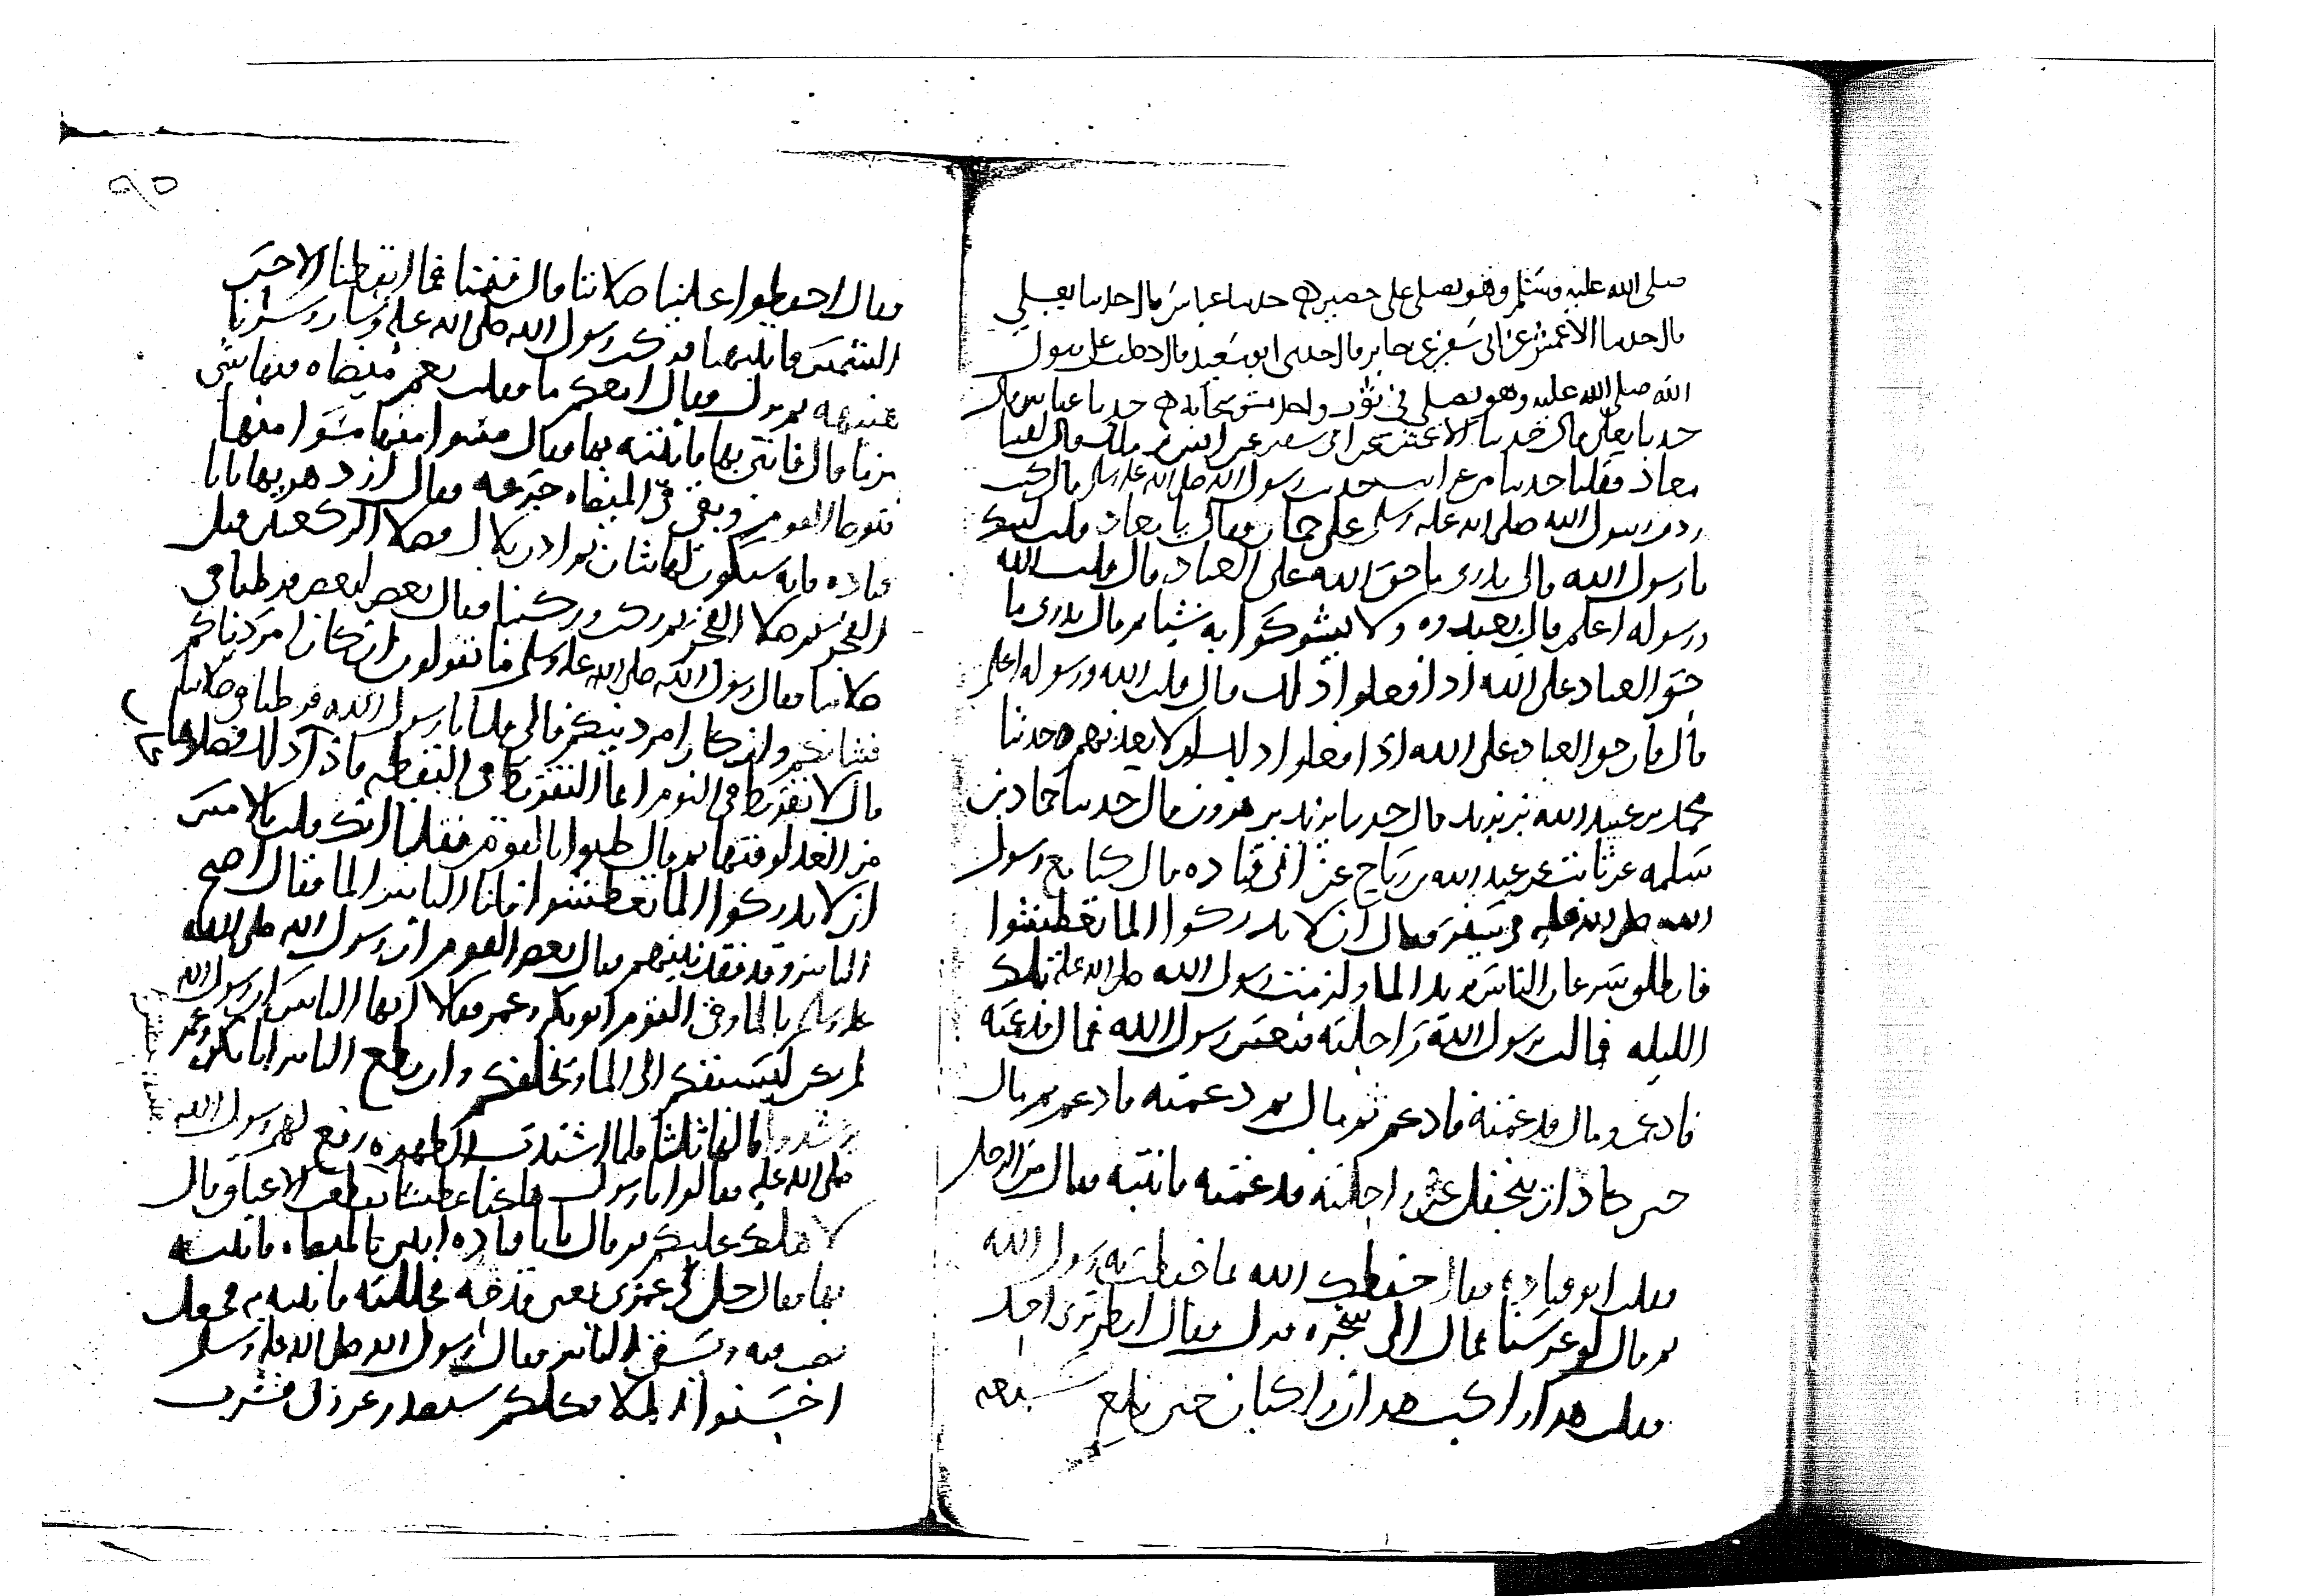 صلى الله عليه وسلم وهو يصلي على حصير ه حدثنا عباس قال حدثنا يعلى
قال حدثنا الاعمش عن ابي سفين عن جابر قال حدثني ابو سعيد قال دخلت على رسول
الله صلى الله عليه وهو يصلي في ثوب واحد متوشحا به ه حدثنا عباس قال
حدثنا يعلى قال حدثنا الاعمش عن ابي سفين عن انس بن ملك قال لقينا
معاذ فقلنا حدثنا من غرايب حديث رسول الله صلى الله عليه وسلم قال كنت
ردف رسول الله صلى الله عليه وسلم على حمار فقال يا معاذ قلت لبيك
يا رسول الله قال تدري ما حق الله على العباد قال قلت الله
ورسوله اعلم قال يعبدوه ولا يشركوا به شيا ثم قال تدري ما
حق العباد على الله اذا فعلوا ذلك قال قلت الله ورسوله اعلم
قال فان حق العباد على الله اذا فعلوا ذلك ان لا يعذبهم ه حدثنا
محمد بن عبيد الله بن يزيد قال حدثنا يزيد بن هرون قال حدثنا حماد بن
سلمه عن ثابت عن عبد الله بن رباح عن ابي قتاده قال كنا مع رسول
الله صلى الله عليه في سفر فقال ان لا تدركوا الما تعطشوا
فانطلق سرعان الناس تريد الما ولزمت رسول الله صلى الله عليه تلك
الليله فمالت برسول الله راحلته فنعس رسول الله فمال فدعمته
فادعم ومال فدعمته فادعم ثم مال ثم دعمته فادعم ثم مال
حتى كاد ان ينجفل عن راحلته فدعمته فانتبه فقال من الرجل
فقلت ابو قتاده فقال حفظك الله بما حفظت به رسول الله
ثم قال لو عرسنا فمال الى شجره فنزل فقال انظر ترى احد
فقلت هذا راكب هذان راكبان حتى بلغ سبعه
٩٥
فقال احفظوا علينا صلاتنا قال فنمنا فما ايقظنا الا حر
الشمس فانتبهنا فركب رسول الله صلى الله عليه وسار وسرنا
هنيهه ثم نزل فقال امعكم ما فقلت نعم ميضاه فيها شي
من ما قال فاتني بها فاتيته بها فقال مسوا منها مسوا منها
فتوضا القوم وبقي في الميضاه جرعه فقال ازدهر بها يابا
قتاده فانه سيكون لها شان ثم اذن بلال وصلا الركعتين قبل
الفجر ثم صلا الفجر ثم ركب وركبنا فقال بعض لبعض فرطنا في
صلاتنا فقال رسول الله صلى الله عليه وسلم ما تقولون ان كان امر دنياكم
فشانكم وان كان امر دينكم فالي قلنا يا رسول الله فرطنا في صلاتنا
قال لا تفريط في النوم انما التفريط في اليقظه فاذا كان ذلك فصلوها
من الغد لوقتها ثم قال ظنوا بالقوم فقلنا انك قلت بالامس
ان لا تدركوا الما تعطشوا فاتا الناس الما فقال اصبح
الناس وقد فقدوا نبيهم فقال بعض القوم ان رسول الله صلى الله
عليه وسلم بالما وفي القوم ابو بكر وعمر فقالا ايها الناس ان رسول الله
لم يكن ليسبقكم الى الما ويخلفكم وان يطع الناس ابا بكر وعمر
يرشدوا قالها ثلثا فلما اشتدت الظهيره رفع لهم رسول الله
صلى الله عليه فقالوا يا رسول هلكنا عطشنا تقطعت الاعناق قال
لا هلك عليكم ثم قال يابا قتاده ايتني بالميضاه فاتيته
بها فقال حل لي غمري يعني قدحه فحللته فاتيته به فجعل
يصب فيه ويسقي الناس فقال رسول الله صلى الله عليه وسلم
احسنوا الملا فكلكم سيصدر عن ري فشرب